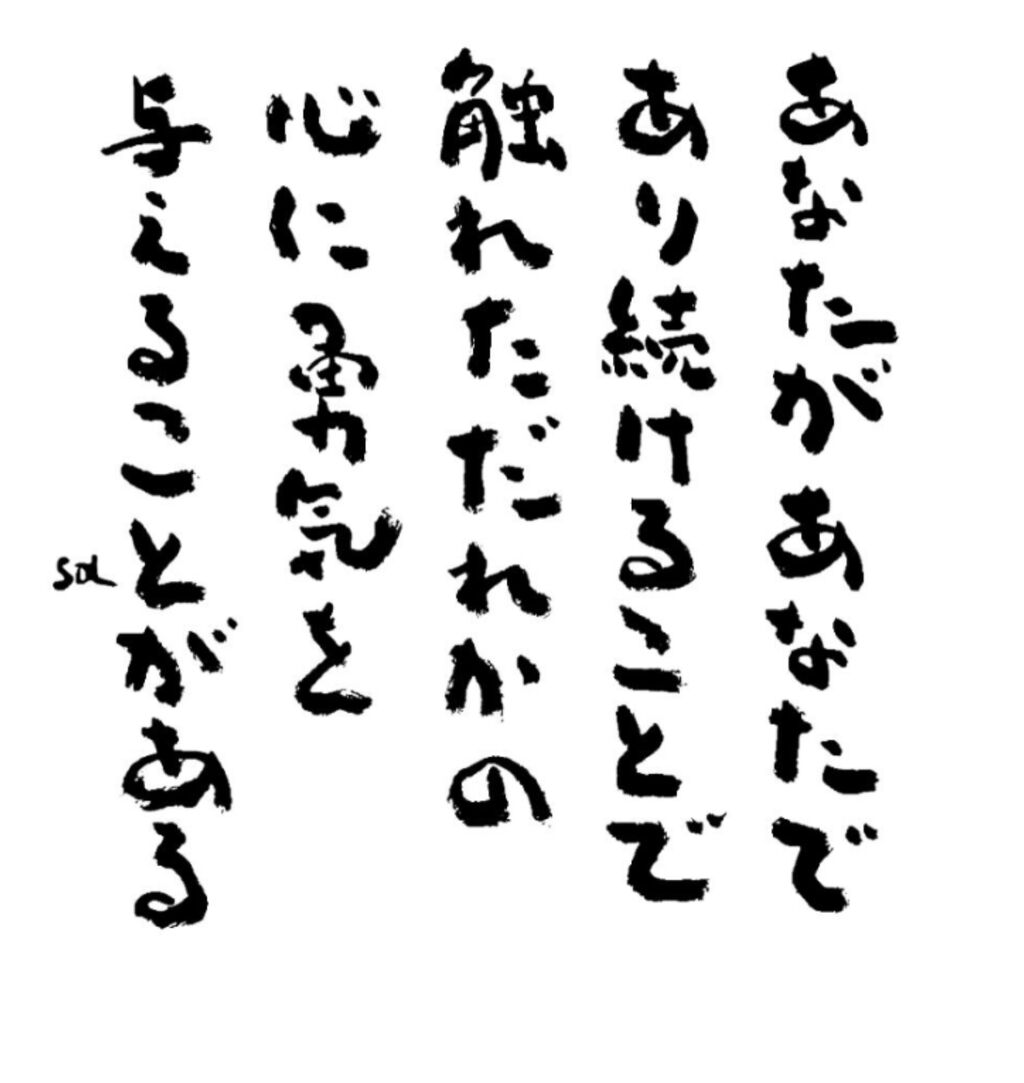 あなたがあなたで
あり続けることで
触れただれかの
心に勇気を
与えることがある
sol